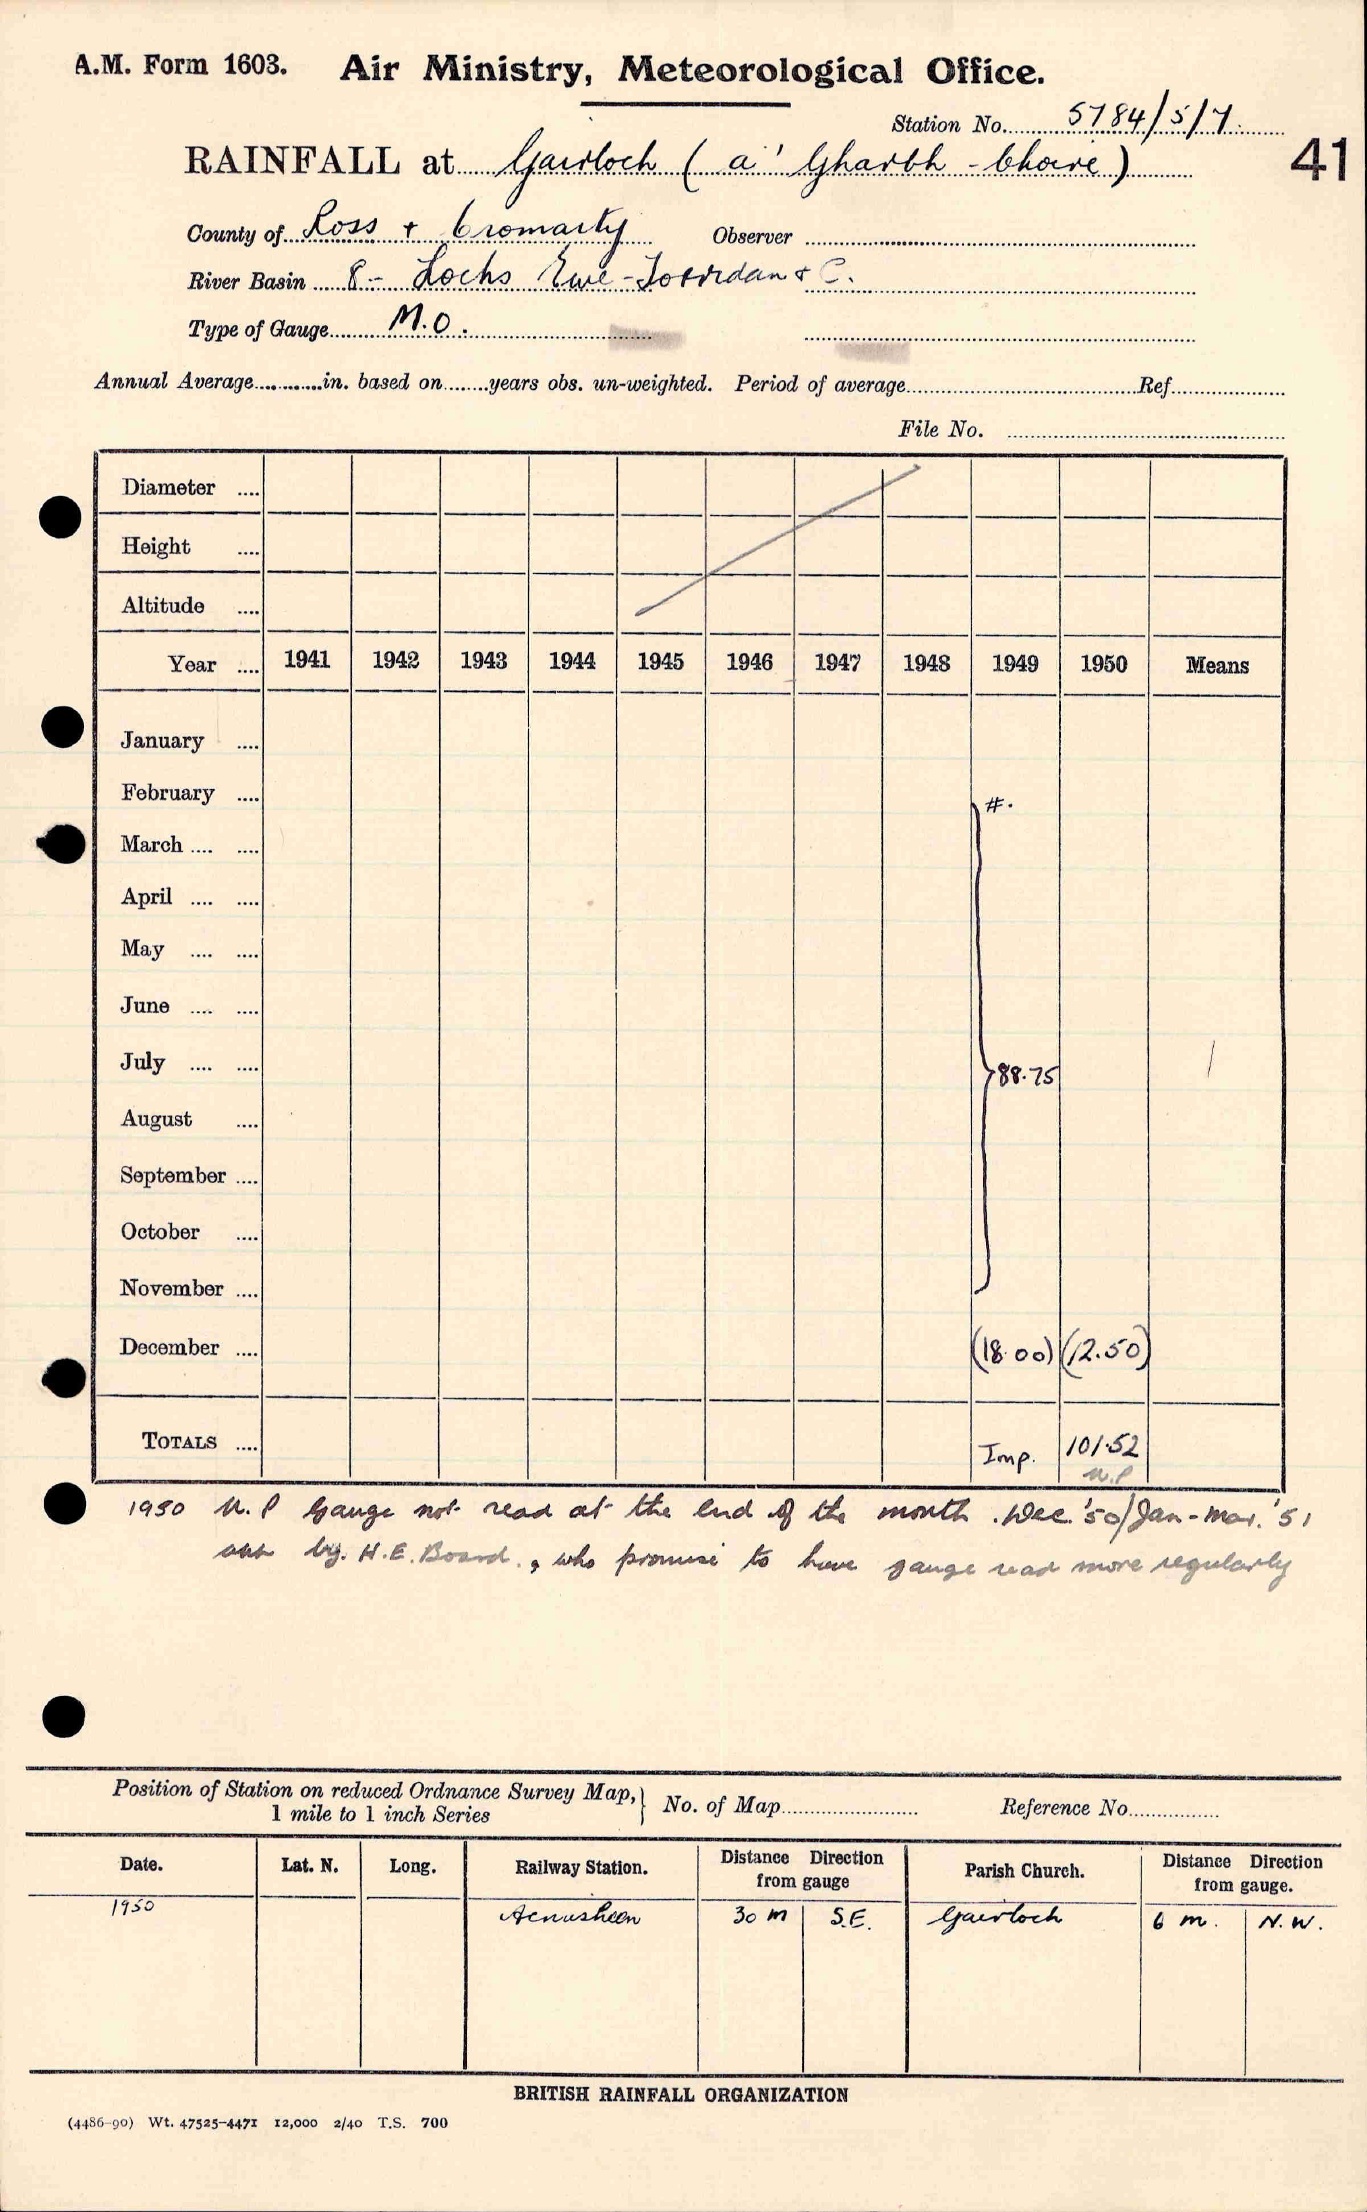 A.M. Form 1603. Air Ministry, Meteorological Office.
Station No. 5784/5/7.
41
RAINFALL at Gairloch ( a' Gharbh - Choire )
County of Ross + Cromarty Observer
River Basin 8 - Lochs Ewe - Torridan & C.
Type of Gauge M.O.
Annual Average in. based on years obs. un-weighted. Period of average Ref.
File No.
Diameter
Height
Altitude
Year 1941 1942 1943 1944 1945 1946 1947 1948 1949 1950 Means
January
February #.
March
April
May
June
July 88.75
August
September
October
November
December (18.00) (12.50)
TOTALS Imp. 101.52
N.P
1950 N.P Gauge not read at the end of the month. Dec. '50/Jan-Mar. '51
by. H.E. Board., who promise to have gauge read more regularly
Position of Station on reduced Ordnance Survey Map,
1 mile to 1 inch Series } No. of Map Reference No.
Date. Lat. N. Long. Railway Station. Distance Direction from gauge Parish Church. Distance Direction from gauge.
1950 Acnasheen 30 m S.E. Gairloch 6 m. N.W.
BRITISH RAINFALL ORGANIZATION
(4486-90) Wt. 47525-4471 12,000 2/40 T.S. 700